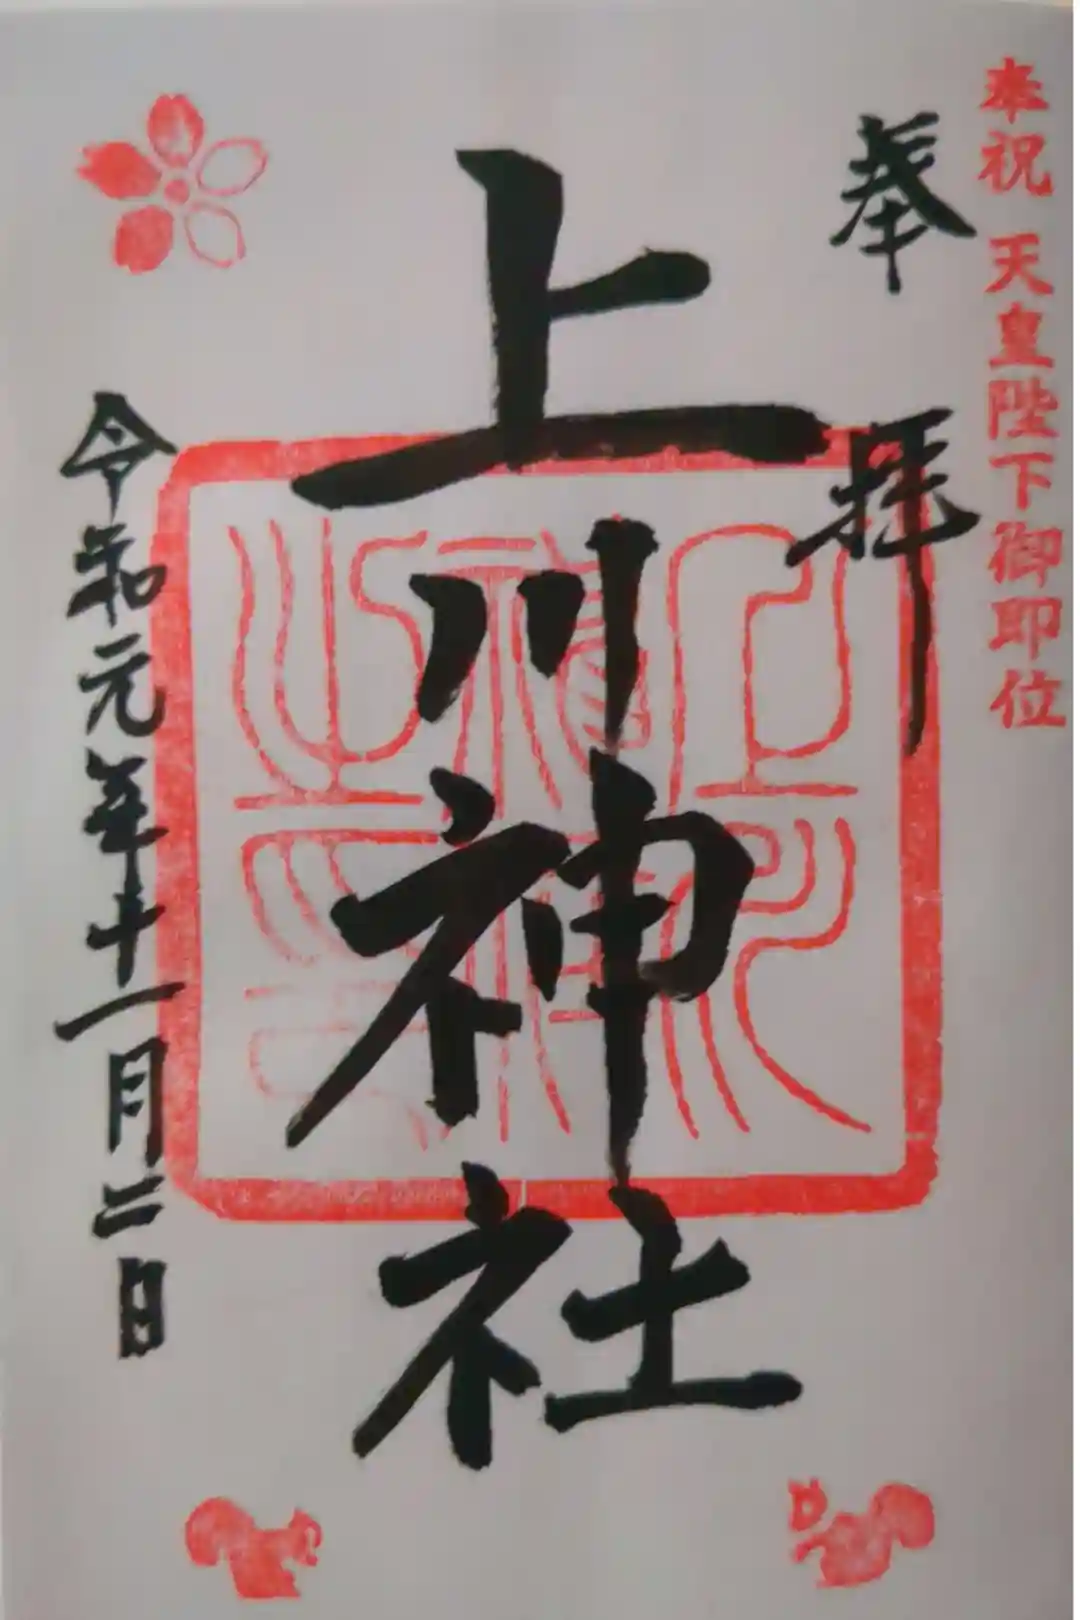 奉祝 天皇陛下御即位
奉拝
上川神社
上川神社之印
令和元年十一月二日